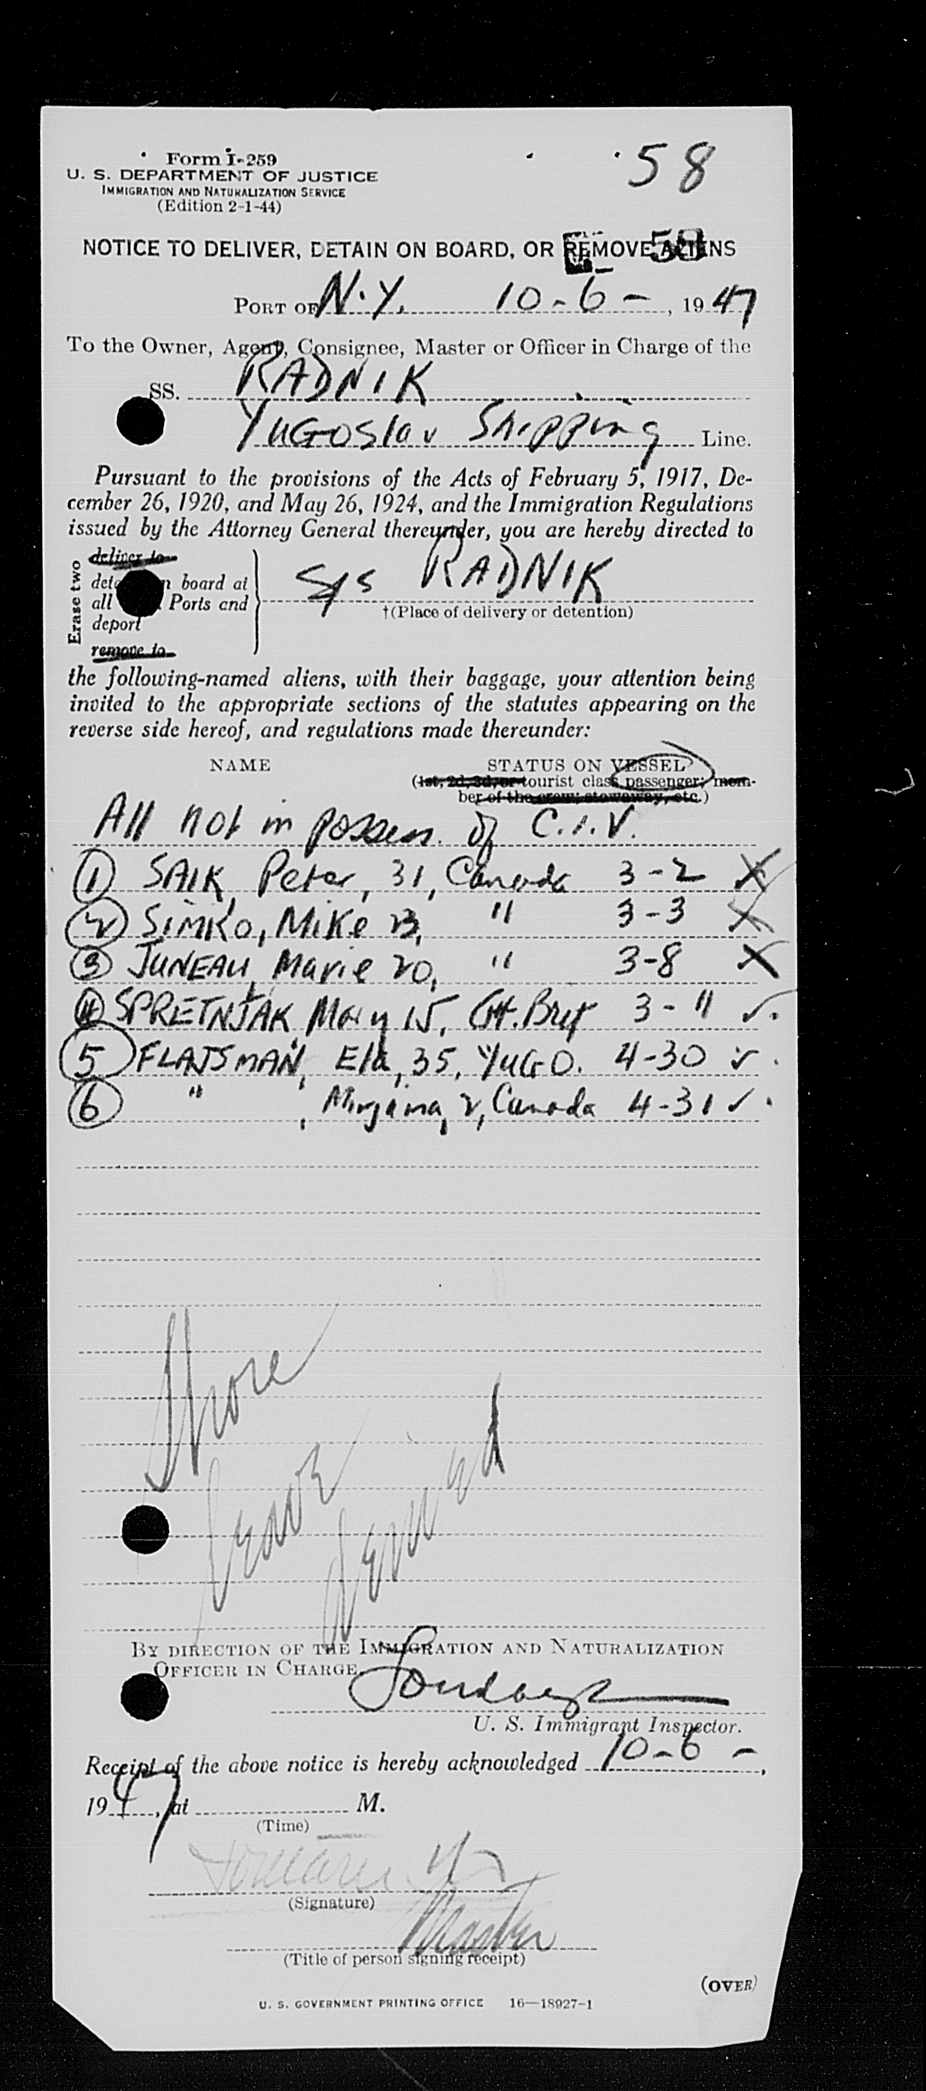 58
Form I-259
U. S. DEPARTMENT OF JUSTICE
IMMIGRATION AND NATURALIZATION SERVICE
(Edition 2-1-44)
NOTICE TO DELIVER, DETAIN ON BOARD, OR REMOVE ALIENS
58
PORT OF N.Y. 10-6-, 1947
To the Owner, Agent, Consignee, Master or Officer in Charge of the
SS. RADNIK
Yugoslav Shipping Line.
Pursuant to the provisions of the Acts of February 5, 1917, De-
cember 26, 1920, and May 26, 1924, and the Immigration Regulations
issued by the Attorney General thereunder, you are hereby directed to
Erase two
deliver to
board at
all Ports and
deport
remove to
S/S RADNIK
†(Place of delivery or detention)
the following-named aliens, with their baggage, your attention being
invited to the appropriate sections of the statutes appearing on the
reverse side hereof, and regulations made thereunder:
NAME STATUS ON VESSEL
(1st, 2d, 3d, or tourist class passenger; mem-
ber of the crew; stowaway, etc.)
All not in possess. of C.I.V.
1 SAIK, Peter, 31, Canada 3-2 X
2 SIMKO, Mike 23, " 3-3 X
3 JUNEAU, Marie 20, " 3-8 X
4 SPRETNJAK, Mary 15, Gt. Brit 3-11 ✓.
5 FLAJSMAN, Ela, 35, YUGO. 4-30 ✓.
6 " , Mirjana, 2, Canada 4-31 ✓.
Shore
leave
denied
BY DIRECTION OF THE IMMIGRATION AND NATURALIZATION
OFFICER IN CHARGE.
U. S. Immigrant Inspector.
Receipt of the above notice is hereby acknowledged 10-6-,
1947, at M.
(Time)
(Signature)
Master
(Title of person signing receipt)
(OVER)
U. S. GOVERNMENT PRINTING OFFICE 16—18927-1